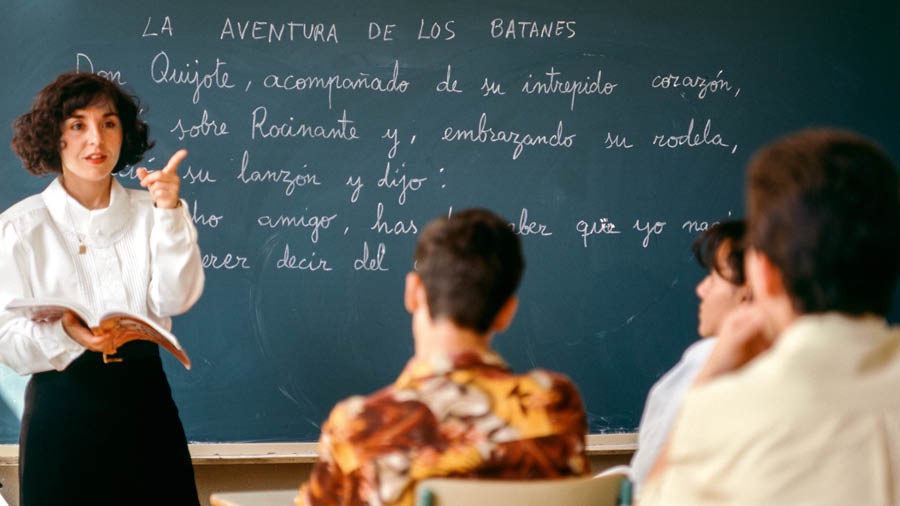 LA AVENTURA DE LOS BATANES
Don Quijote, acompañado de su intrepido corazón,
sobre Rocinante y, embrazando su rodela,
su lanzón y dijo:
amigo, has que yo
decir del